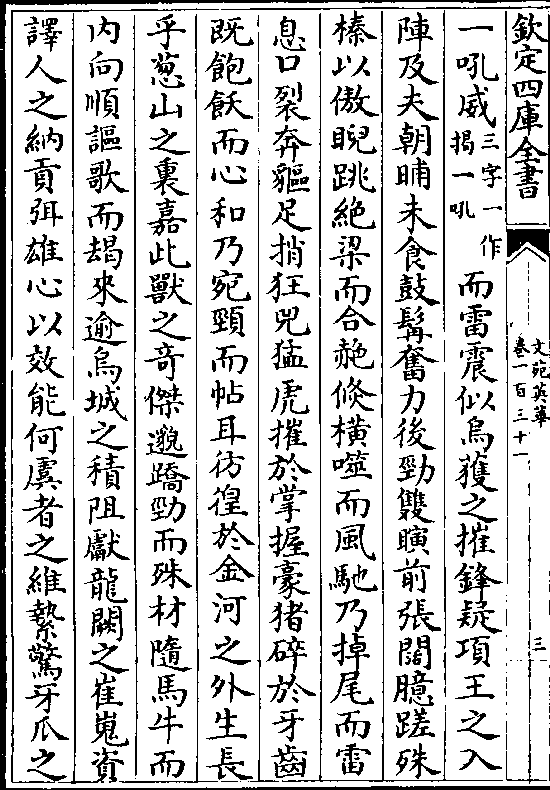 欽定四庫全書
文苑英華
卷一百三十一
三
一吼威三字一作揭一吼而雷震似烏獲之摧鋒疑項王之入
陣及夫朝晡未食鼓髯奮力後勁雙瞚前張闊臆蹉殊
榛以傲睨跳絶梁而合赩倐橫噬而風馳乃掉尾而雷
息口裂奔軀足捎狂兕猛虎摧於掌握豪猪碎於牙齒
既飽飫而心和乃宛頸而帖耳彷徨於金河之外生長
乎蔥山之裏嘉此獸之奇傑邈蹻勁而殊材隨馬牛而
内向順謳歌而朅來逾烏城之積阻獻龍闕之崔嵬資
譯人之納貢弭雄心以效能何虞者之維縶驚牙爪之